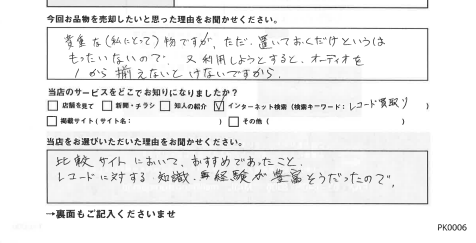 今回お品物を売却したいと思った理由をお聞かせください。
貴重な(私にとって)物ですが、ただ、置いておくだけというは
もったいないので、又利用しようとすると、オーディオを
1から揃えないとけないですから。
当店のサービスをどこでお知りになりましたか？
店頭を見て 新聞・チラシ 知人の紹介 インターネット検索(検索キーワード：レコード買取り)
掲載サイト(サイト名： ) その他( )
当店をお選びいただいた理由をお聞かせください。
比較サイトにおいて、おすすめであったこと。
レコードに対する知識、経験が豊富そうだったので。
→裏面もご記入くださいませ
PK0006